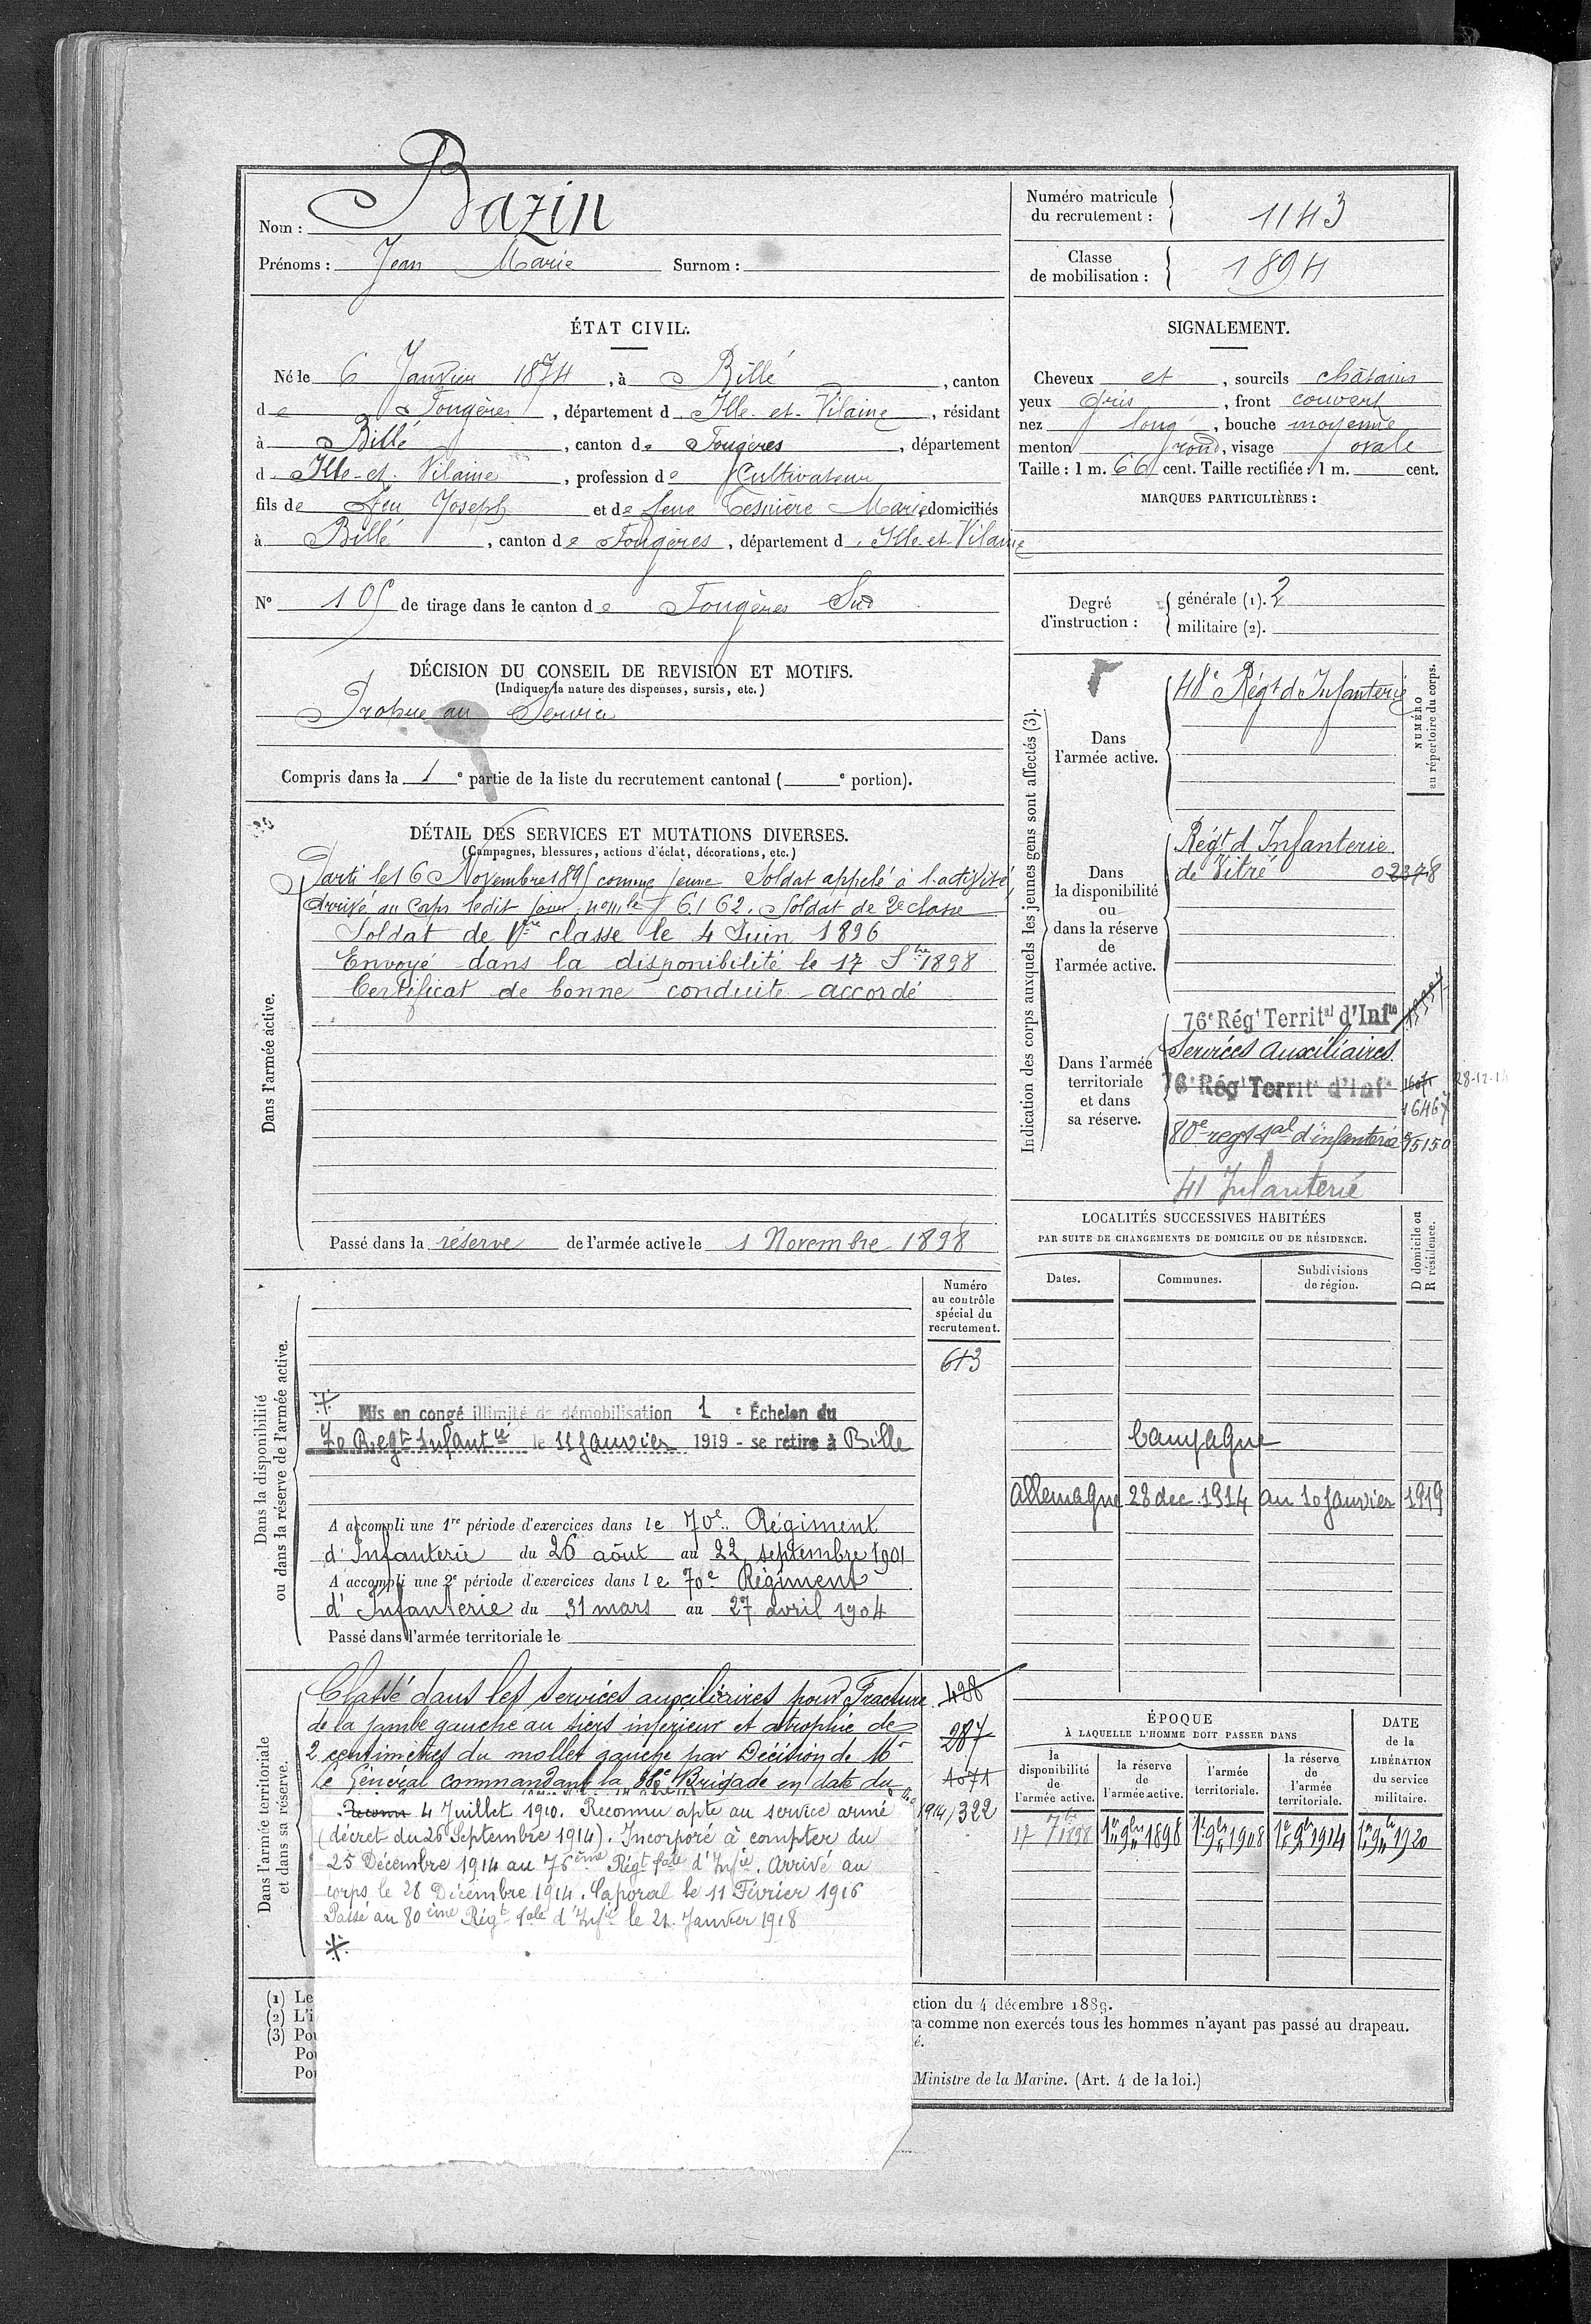 Nom : Bazin
Prénoms : Jean Marie Surnom :
Numéro matricule
du recrutement : 1143
Classe
de mobilisation : 1894
ÉTAT CIVIL.
Né le 6 Janvier 1874, à Billé, canton
de Fougères, département d'Ille-et-Vilaine, résidant
à Billé, canton de Fougères, département
d'Ille-et-Vilaine, profession de Cultivateur
fils de feu Joseph et de feue Tesnière Marie domiciliés
à Billé, canton de Fougères, département d'Ille-et-Vilaine
N° 105 de tirage dans le canton de Fougères Sud
SIGNALEMENT.
Cheveux et, sourcils châtains
yeux gris, front couvert
nez long, bouche moyenne
menton rond, visage ovale
Taille : 1 m. 66 cent. Taille rectifiée : 1 m. cent.
MARQUES PARTICULIÈRES :
Degré
d'instruction :
générale (1). 2
militaire (2).
DÉCISION DU CONSEIL DE REVISION ET MOTIFS.
(Indiquer la nature des dispenses, sursis, etc.)
Propre au Service
Compris dans la 1e partie de la liste du recrutement cantonal ( e portion).
DÉTAIL DES SERVICES ET MUTATIONS DIVERSES.
(Campagnes, blessures, actions d'éclat, décorations, etc.)
Dans l'armée active.
Parti le 16 Novembre 1895 comme jeune Soldat appelé à l'activité,
Arrivé au Corps ledit jour, no mle 6162. Soldat de 2e classe
Soldat de 1re classe le 4 Juin 1896
Envoyé dans la disponibilité le 17 Sbre 1898
Certificat de bonne conduite accordé
Passé dans la réserve de l'armée active le 1 Novembre 1898
Indication des corps auxquels les jeunes gens sont affectés (3).
NUMÉRO
au répertoire du corps.
Dans
l'armée active.
48e Régt d'Infanterie
Dans
la disponibilité
ou
dans la réserve
de
l'armée active.
Régt d'Infanterie
de Vitré 02378
Dans l'armée
territoriale
et dans
sa réserve.
76e Régt Territal d'Infie
Services Auxiliaires
76e Régt Territal d'Infie 1607
28-12-14
16467
80e regt tal d'infanterie 15150
41 Infanterie
LOCALITÉS SUCCESSIVES HABITÉES
PAR SUITE DE CHANGEMENTS DE DOMICILE OU DE RÉSIDENCE.
Dates. Communes. Subdivisions
de région.
D domicile ou
R résidence.
Campagne
Allemagne 28 dec. 1914 au 10 janvier 1919
Dans la disponibilité
ou dans la réserve de l'armée active.
Numéro
au contrôle
spécial du
recrutement.
613
Mis en congé illimité de démobilisation 1e Échelon du
70 Regt Infantie le 11 janvier 1919 - se retire à Bille
A accompli une 1re période d'exercices dans le 70e Régiment
d'Infanterie du 26 août au 22 septembre 1901
A accompli une 2e période d'exercices dans le 70e Régiment
d'Infanterie du 31 mars au 27 avril 1904
Passé dans l'armée territoriale le
Dans l'armée territoriale
et dans sa réserve.
Classé dans les services auxiliaires pour Fracture 428
de la jambe gauche au tiers inférieur et atrophie de
2 centimètres du mollet gauche par Décision de Mr 287
Le Général commandant la Brigade en date du 1071
Reconnu 4 Juillet 1910. Reconnu apte au service armé 1914/322
(décret du 26 Septembre 1914). Incorporé à compter du
25 Décembre 1914 au 76ème Régt tale d'Infie. Arrivé au
corps le 28 Décembre 1914. Caporal le 11 Février 1916
Passé au 80ème Régt tale d'Infie le 21 Janvier 1918
ÉPOQUE
À LAQUELLE L'HOMME DOIT PASSER DANS
la
disponibilité
de
l'armée active.
la réserve
de
l'armée active.
l'armée
territoriale.
la réserve
de
l'armée
territoriale.
DATE
de la
LIBÉRATION
du service
militaire.
17 7bre 1898 1er 9bre 1898 1er 9bre 1908 1er 9bre 1914 1er 9bre 1920
(1) Le
(2) L'i
(3) Pou
Pou
Pou
ction du 4 décembre 1889.
ra comme non exercés tous les hommes n'ayant pas passé au drapeau.
é.
Ministre de la Marine. (Art. 4 de la loi.)